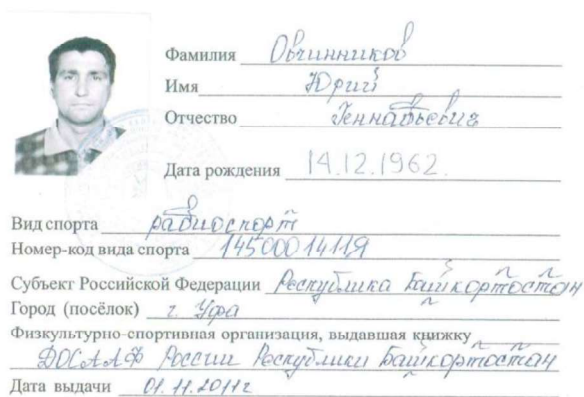 Фамилия Овчинников
Имя Юрий
Отчество Геннадьевич
Дата рождения 14.12.1962.
Вид спорта радиоспорт
Номер-код вида спорта 1450001411Я
Субъект Российской Федерации Республика Башкортостан
Город (посёлок) г. Уфа
Физкультурно-спортивная организация, выдавшая книжку
ДОСААФ России Республики Башкортостан
Дата выдачи 01.11.2011г